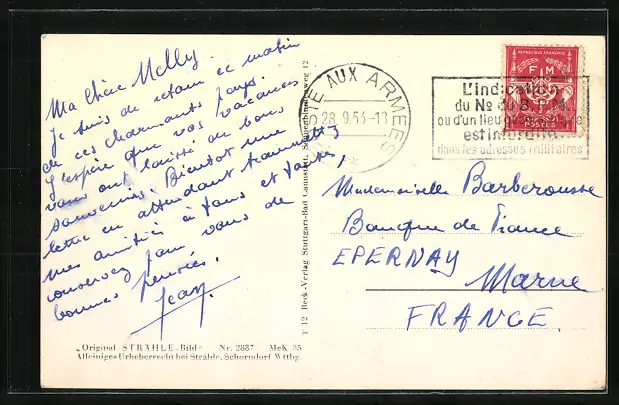 Ma chère Melly
je suis de retour ce matin
de ces charmants pays.
J'espère que vos vacances
vous ont laissé de bons
souvenirs. Bientôt une
lettre en attendant transmettez
mes amitiés à tous et toutes,
conservez pour vous de
bonnes pensées.
Jean
„Original STRÄHLE-Bild“ Nr. 2887 MeK 35
Alleiniges Urheberrecht bei Strähle, Schorndorf Wttbg.
T 12 Beck-Verlag Stuttgart-Bad Cannstatt, 12
POSTE AUX ARMEES
28.9.53-13
REPUBLIQUE FRANÇAISE
F M
POSTES
L'indication
du No du B.P.M.
ou d'un lieu
est interdite
dans les adresses militaires
Mademoiselle Barberousse
Banque de France
EPERNAY Marne
FRANCE.